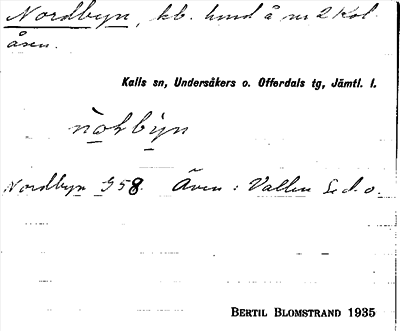 Nordbyn, kb. hmd å nr 2 Kol
åsen.
Kalls sn, Undersåkers o. Offerdals tg, Jämtl. l.
nòḷbýn
Nordbyn G58. Även: Vallen Se d. o.
BERTIL BLOMSTRAND 1935